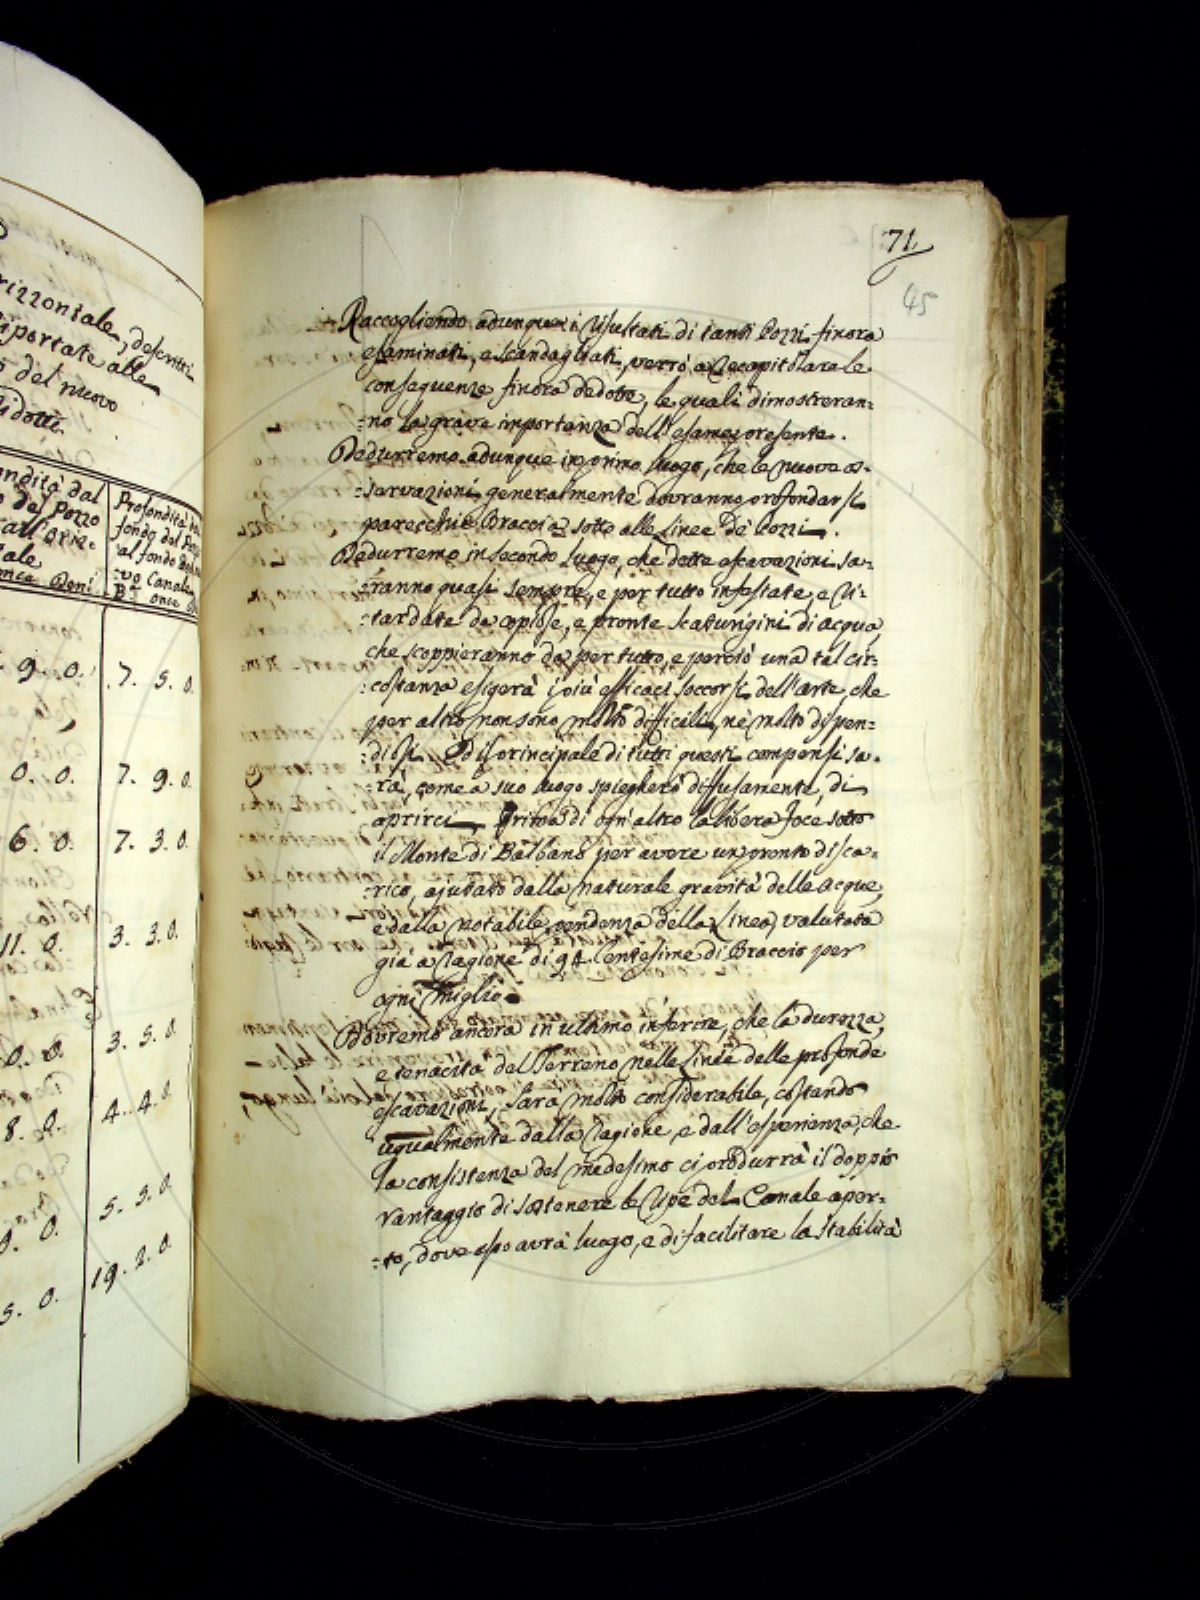 rizzontale, descritti
riportate alle
del nuovo
ridotti.
ondità dal
del Pozzo
all'Oriz=
tale
once Deni
Profondità dal
fondo del Pozzo
al fondo del nuo
=vo Canale
B.a once
9. 0. 7. 5. 0.
0. 0. 7. 9. 0.
6. 0. 7. 3. 0.
11. 0. 3. 3. 0.
0. 0. 3. 5. 0.
8. 0. 4. 4. 0.
9. 0. 5. 5. 0.
5. 0. 19. 2. 0.
71
45
Raccogliendo adunque i risultati di tanti Pozzi finora
esaminati, e scandagliati, verrò a recapitolare le
conseguenze finora dedotte, le quali dimostreran=
=no la grave importanza dell'esame presente.
Dedurremo adunque in primo luogo, che le nuove es=
=servazioni generalmente dovranno profondarsi
parecchie Braccia sotto alle Linee de' Pozzi.
Dedurremo in secondo luogo, che dette escavazioni sa=
=ranno quasi sempre, e per tutto infestate, e ri=
=tardate da copiose, e pronte scaturigini di acqua,
che scoppieranno da per tutto, e perciò una tal cir=
=costanza esigerà i più efficaci soccorsi dell'arte, che
per altro non sono molto difficili, nè molto dispen=
=diosi. Ed il principale di tutti questi compensi sa=
=rà, come a suo luogo spiegherò diffusamente, di
aprirci prima di ogn'altro la libera foce sotto
il Monte di Balbano per avere un pronto disca=
=rico, ajutato dalla naturale gravità delle acque,
e dalla notabile pendenza della Linea, valutata
già a ragione di 94 Centesime di Braccio per
ogni miglio.
Dovremo ancora in ultimo inferire, che la durezza,
e tenacità del Terreno nelle Linee delle profonde
escavazioni, sarà molto considerabile, costando
ugualmente dalla ragione, e dall'esperienza, che
la consistenza del medesimo ci produrrà il doppio
vantaggio di sostenere le ripe del Canale aper=
=to, dove esso avrà luogo, e di facilitare la stabilità